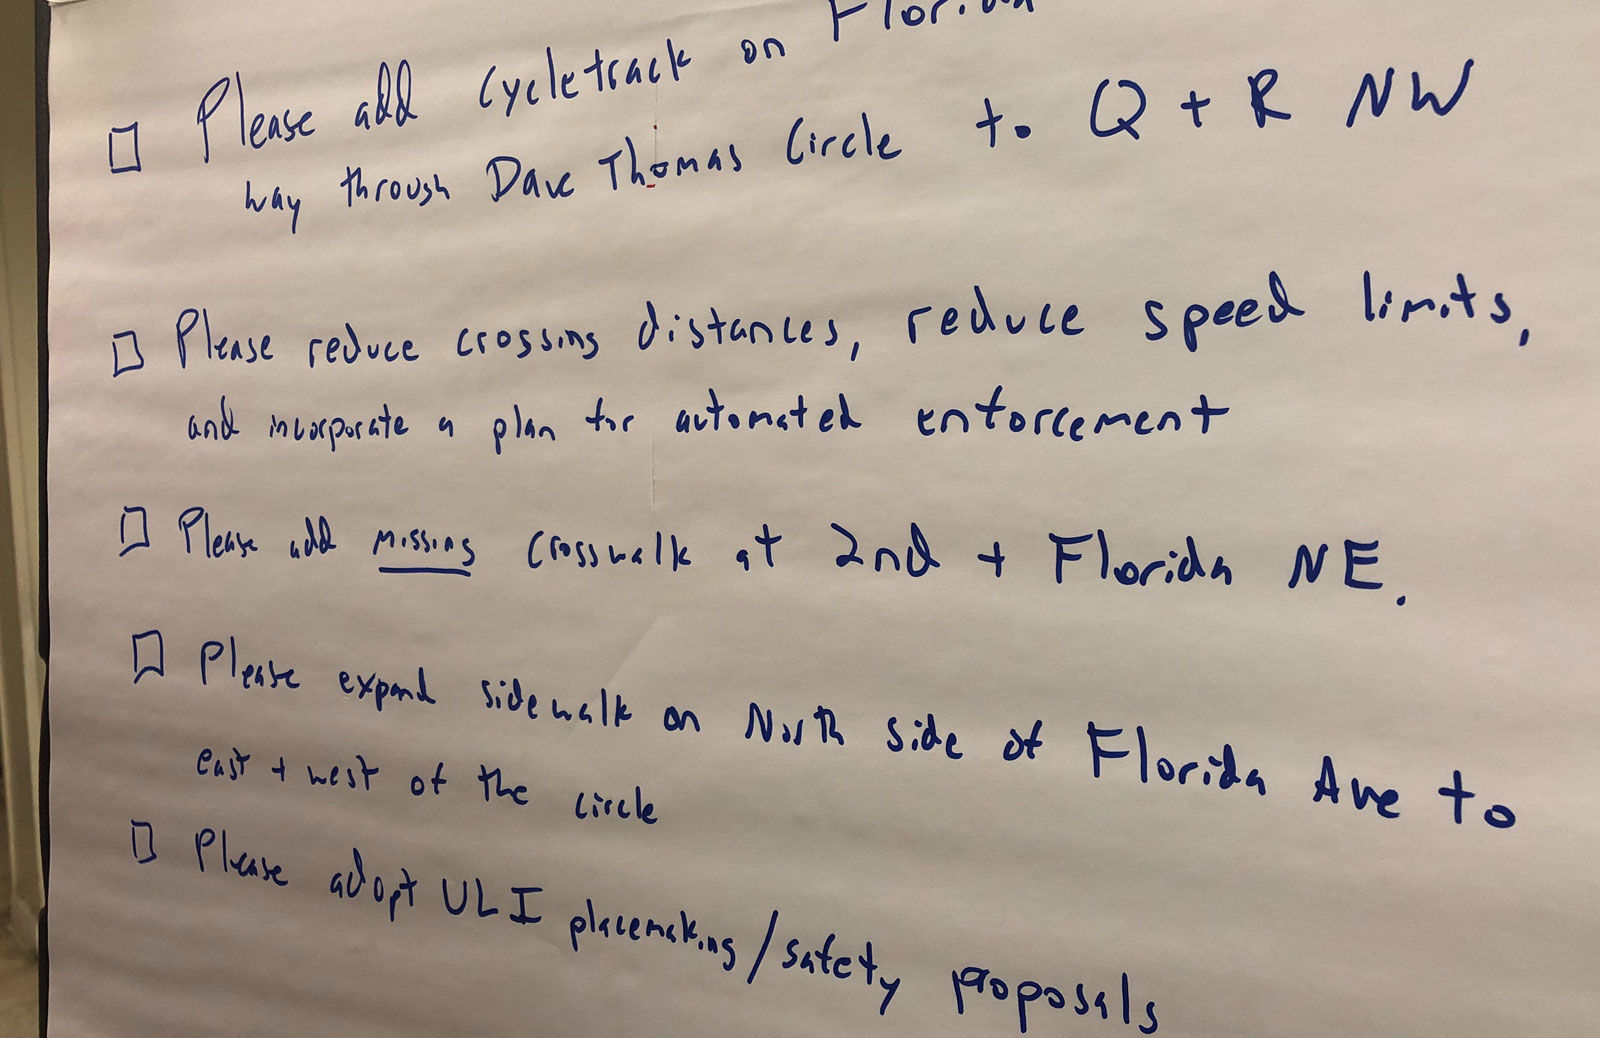 ☐ Please add cycletrack on Florida
way through Dave Thomas Circle to Q + R NW
☐ Please reduce crossing distances, reduce speed limits,
and incorporate a plan for automated enforcement
☐ Please add missing crosswalk at 2nd + Florida NE.
☐ Please expand sidewalk on North side of Florida Ave to
east + west of the circle
☐ Please adopt ULI placemaking/safety proposals